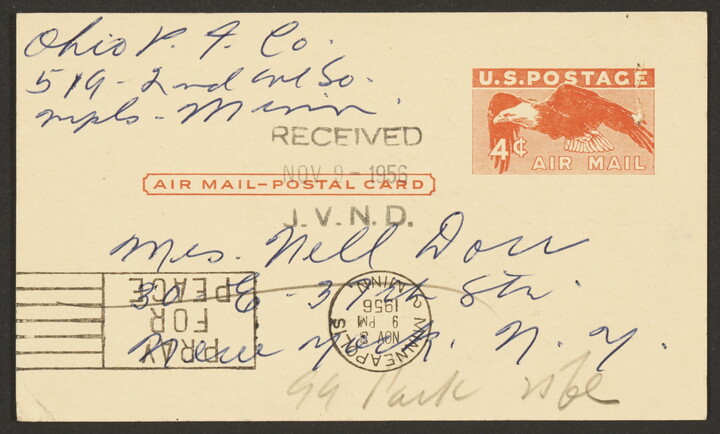 Ohio P. I. Co.
519 - 2nd Ave So.
mpls - Minn.
U.S. POSTAGE
4¢
AIR MAIL
RECEIVED
NOV 9 - 1956
J. V. N. D.
AIR MAIL-POSTAL CARD
Mrs. Nell Dorr
30 E - 37th Str.
New York. N. Y.
PRAY
FOR
PEACE
MINNEAPOLIS
MINN.
NOV 8
9 PM
1956
99 Park